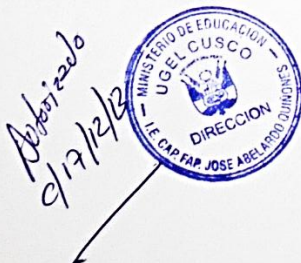 Autorizado
d/17/12/12
MINISTERIO DE EDUCACION
UGEL CUSCO
DIRECCION
I.E. CAP. FAP. JOSE ABELARDO QUIÑONES